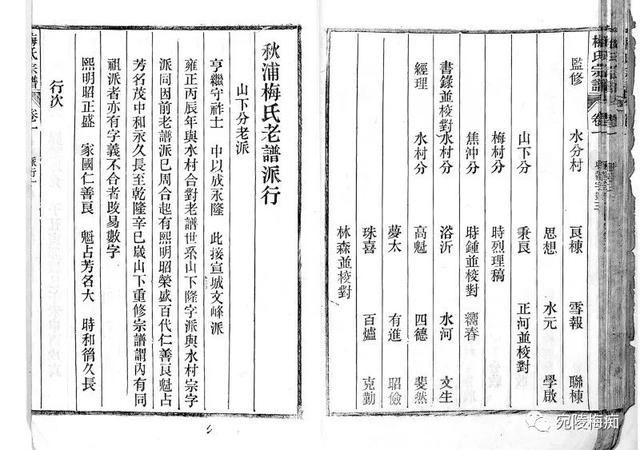 梅氏宗譜
卷一
監修
水分村
良棟
雪報
聯棟
思想
水元
學啟
山下分
秉良
正河並校對
梅村分
時烈理稿
焦沖分
時鍾並校對
書錄並校對
水村分
浴沂
水河
文生
經理
水村分
高魁
四德
斐然
夢太
有進
昭儉
珠喜
百爐
克勤
林森並校對
秋浦梅氏老譜派行
山下分老派
亨繼守祚士　中以成永隆　此接宣城文峰派
雍正丙辰年與水村合對老譜世系山下隆字派與水村宗字
派同因前老譜派已周合起有熙明昭榮盛百代仁善良魁占
芳名茂中和永久長至乾隆辛巳歲山下重修宗譜謂內有同
祖派者亦有字義不合者改易數字
行次
熙明昭正盛　家國仁善良　魁占芳名大　時和衍久長
梅氏宗譜
卷一
派行一
宛陵梅痴